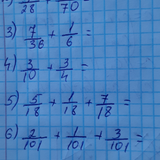 28 70
3) 7/36 + 1/6 =
4) 3/10 + 3/4 =
5) 5/18 + 1/18 + 7/18 =
6) 2/101 + 1/101 + 3/101 =